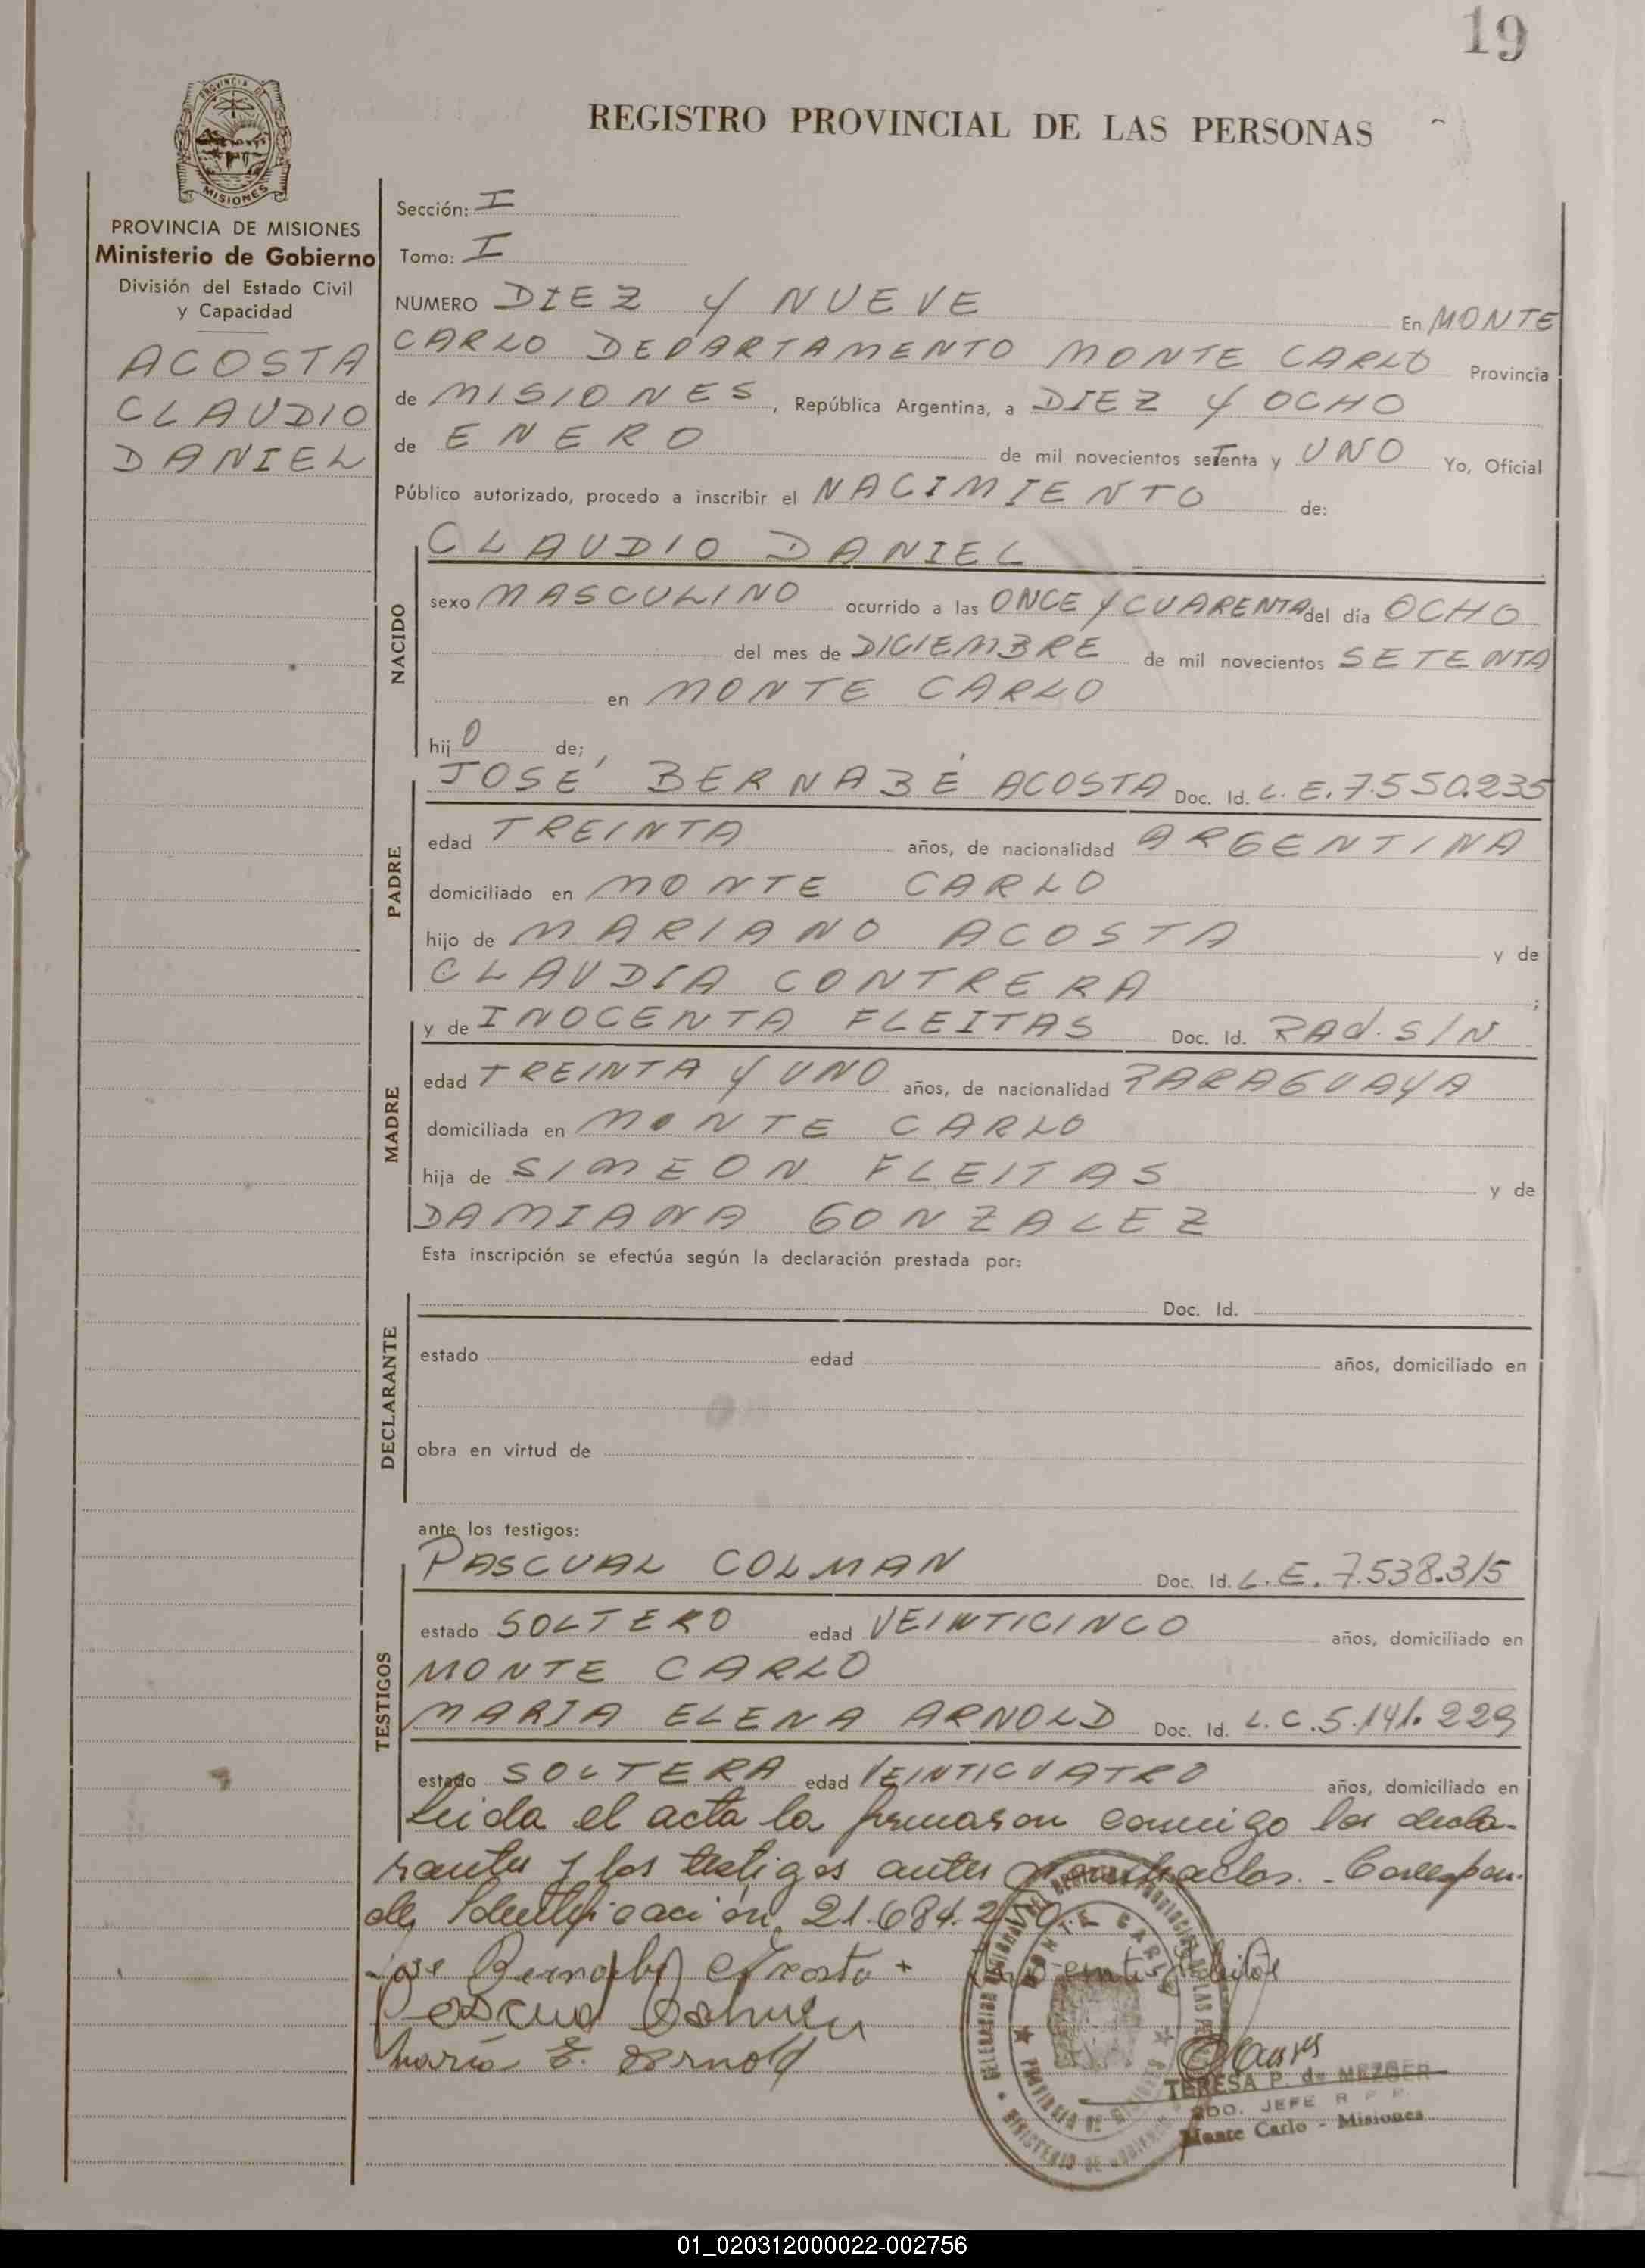 19
PROVINCIA DE
MISIONES
REGISTRO PROVINCIAL DE LAS PERSONAS
PROVINCIA DE MISIONES
Ministerio de Gobierno
División del Estado Civil
y Capacidad
ACOSTA
CLAUDIO
DANIEL
Sección: I
Tomo: I
NUMERO DIEZ Y NUEVE En MONTE
CARLO DEPARTAMENTO MONTE CARLO Provincia
de MISIONES, República Argentina, a DIEZ Y OCHO
de ENERO de mil novecientos seTenta y UNO Yo, Oficial
Público autorizado, procedo a inscribir el NACIMIENTO de:
NACIDO
CLAUDIO DANIEL
sexo MASCULINO ocurrido a las ONCE Y CUARENTA del día OCHO
del mes de DICIEMBRE de mil novecientos SETENTA
en MONTE CARLO
hijO de;
PADRE
JOSÉ BERNABÉ ACOSTA Doc. Id. L.E. 7.550.235
edad TREINTA años, de nacionalidad ARGENTINA
domiciliado en MONTE CARLO
hijo de MARIANO ACOSTA y de
CLAUDIA CONTRERA ;
MADRE
y de INOCENTA FLEITAS Doc. Id. RAd. S/N
edad TREINTA Y UNO años, de nacionalidad PARAGUAYA
domiciliada en MONTE CARLO
hija de SIMEON FLEITAS y de
DAMIANA GONZALEZ
Esta inscripción se efectúa según la declaración prestada por:
DECLARANTE
Doc. Id.
estado edad años, domiciliado en
obra en virtud de
ante los testigos:
TESTIGOS
PASCUAL COLMAN Doc. Id. L.E. 7.538.315
estado SOLTERO edad VEINTICINCO años, domiciliado en
MONTE CARLO
MARIA ELENA ARNOLD Doc. Id. L.C. 5.141.229
estado SOLTERA edad VEINTICUATRO años, domiciliado en
Leida el acta la firmaron conmigo los decla-
rantes y los testigos antes nombrados. - Correspon-
de Identificación 21.684.2
Jose Bernabé Acosta +
Pascual Colman
Maria E. Arnold
MONTE CARLO
PROVINCIA DE MISIONES
TERESA P. de MEZGER
2DO. JEFE R P P.
Monte Carlo - Misiones
01_020312000022-002756